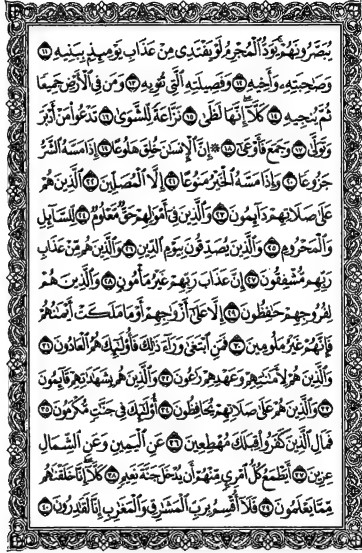 يُبَصَّرُونَهُمْ ۚ يَوَدُّ الْمُجْرِمُ لَوْ يَفْتَدِي مِنْ عَذَابِ يَوْمِئِذٍ بِبَنِيهِ ١١
وَصَاحِبَتِهِ وَأَخِيهِ ١٢ وَفَصِيلَتِهِ الَّتِي تُؤْوِيهِ ١٣ وَمَن فِي الْأَرْضِ جَمِيعًا
ثُمَّ يُنجِيهِ ١٤ كَلَّا ۖ إِنَّهَا لَظَىٰ ١٥ نَزَّاعَةً لِّلشَّوَىٰ ١٦ تَدْعُو مَنْ أَدْبَرَ
وَتَوَلَّىٰ ١٧ وَجَمَعَ فَأَوْعَىٰ ١٨ ۞ إِنَّ الْإِنسَانَ خُلِقَ هَلُوعًا ١٩ إِذَا مَسَّهُ الشَّرُّ
جَزُوعًا ٢٠ وَإِذَا مَسَّهُ الْخَيْرُ مَنُوعًا ٢١ إِلَّا الْمُصَلِّينَ ٢٢ الَّذِينَ هُمْ
عَلَىٰ صَلَاتِهِمْ دَائِمُونَ ٢٣ وَالَّذِينَ فِي أَمْوَالِهِمْ حَقٌّ مَّعْلُومٌ ٢٤ لِّلسَّائِلِ
وَالْمَحْرُومِ ٢٥ وَالَّذِينَ يُصَدِّقُونَ بِيَوْمِ الدِّينِ ٢٦ وَالَّذِينَ هُم مِّنْ عَذَابِ
رَبِّهِم مُّشْفِقُونَ ٢٧ إِنَّ عَذَابَ رَبِّهِمْ غَيْرُ مَأْمُونٍ ٢٨ وَالَّذِينَ هُمْ
لِفُرُوجِهِمْ حَافِظُونَ ٢٩ إِلَّا عَلَىٰ أَزْوَاجِهِمْ أَوْ مَا مَلَكَتْ أَيْمَانُهُمْ
فَإِنَّهُمْ غَيْرُ مَلُومِينَ ٣٠ فَمَنِ ابْتَغَىٰ وَرَاءَ ذَٰلِكَ فَأُولَٰئِكَ هُمُ الْعَادُونَ ٣١
وَالَّذِينَ هُمْ لِأَمَانَاتِهِمْ وَعَهْدِهِمْ رَاعُونَ ٣٢ وَالَّذِينَ هُم بِشَهَادَاتِهِمْ قَائِمُونَ
٣٣ وَالَّذِينَ هُمْ عَلَىٰ صَلَاتِهِمْ يُحَافِظُونَ ٣٤ أُولَٰئِكَ فِي جَنَّاتٍ مُّكْرَمُونَ ٣٥
فَمَالِ الَّذِينَ كَفَرُوا قِبَلَكَ مُهْطِعِينَ ٣٦ عَنِ الْيَمِينِ وَعَنِ الشِّمَالِ
عِزِينَ ٣٧ أَيَطْمَعُ كُلُّ امْرِئٍ مِّنْهُمْ أَن يُدْخَلَ جَنَّةَ نَعِيمٍ ٣٨ كَلَّا ۖ إِنَّا خَلَقْنَاهُم
مِّمَّا يَعْلَمُونَ ٣٩ فَلَا أُقْسِمُ بِرَبِّ الْمَشَارِقِ وَالْمَغَارِبِ إِنَّا لَقَادِرُونَ ٤٠